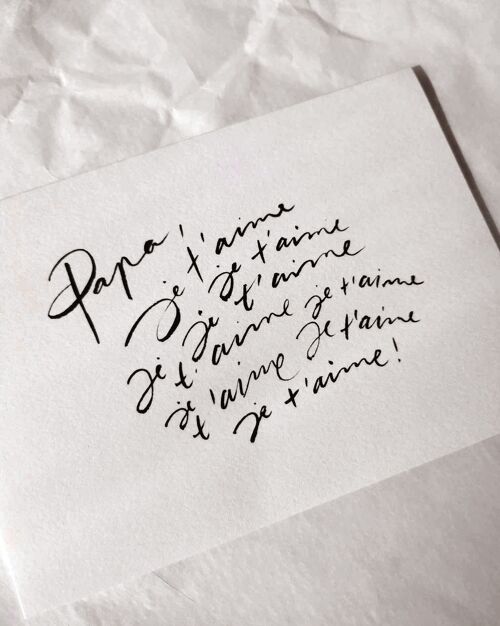 Papa!
je t'aime
je t'aime
je t'aime
je t'aime je t'aime
je t'aime Je t'aime
je t'aime!